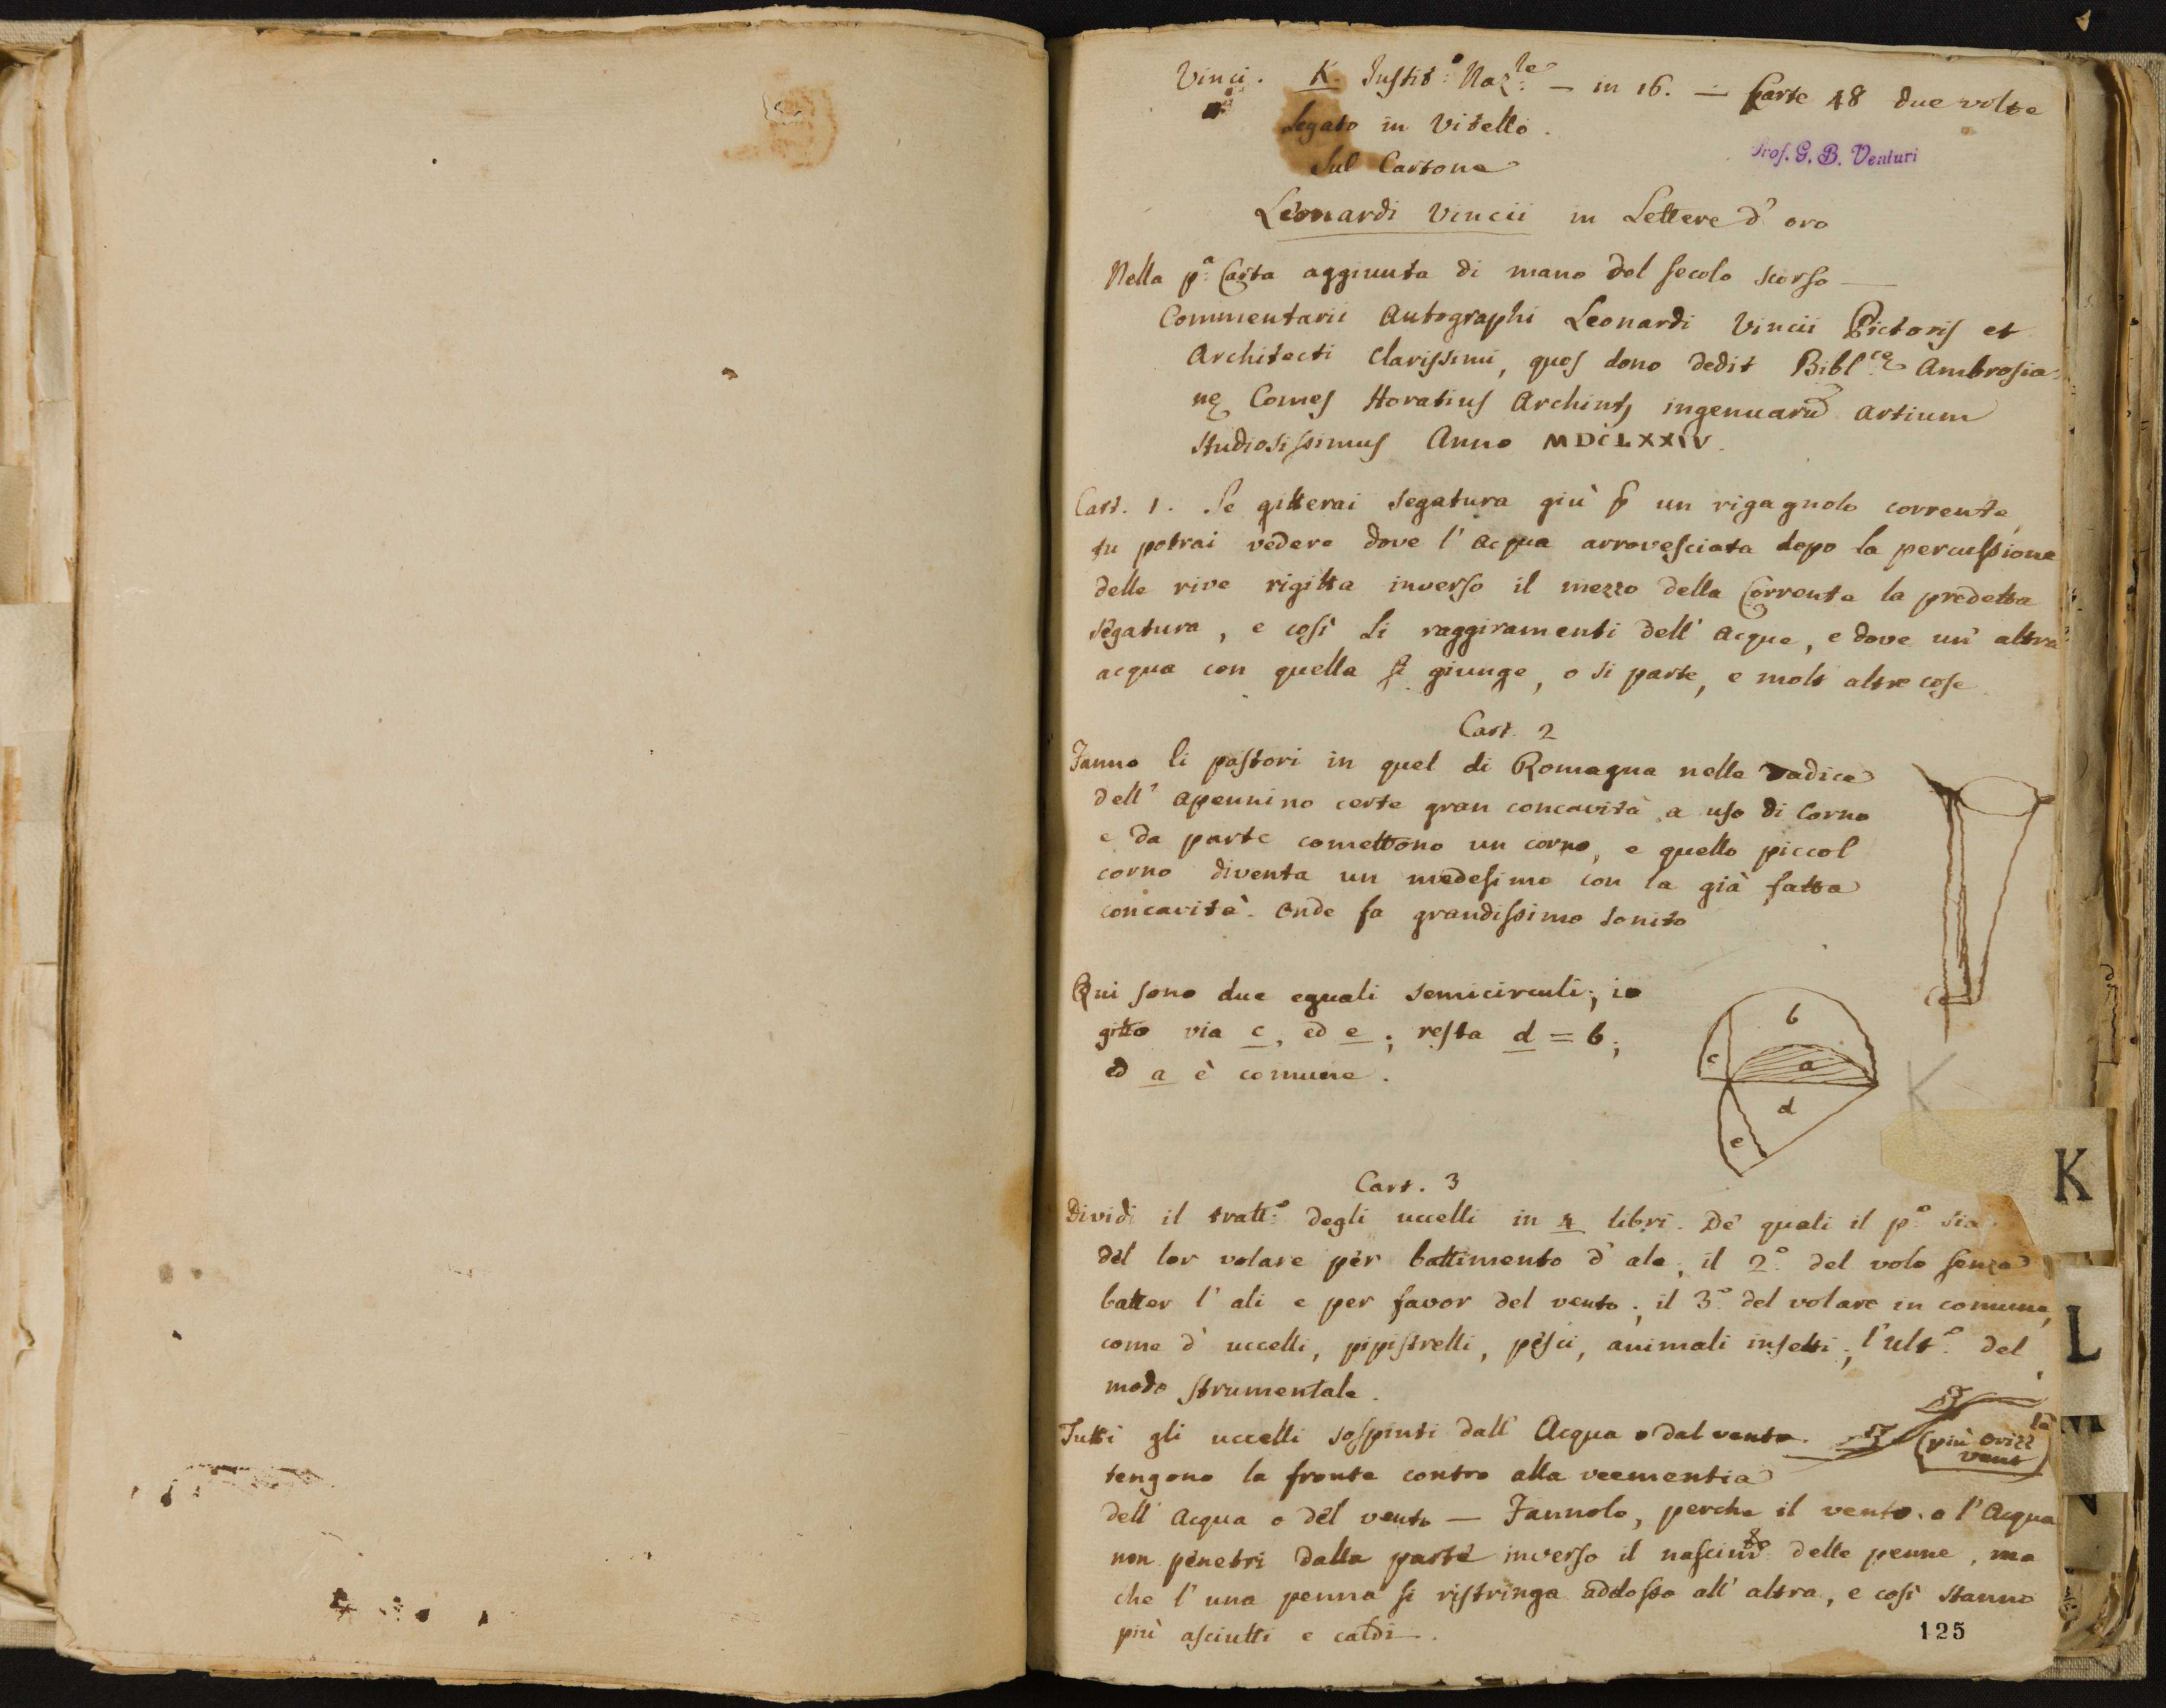 Vinci. K. Instit.º Naz.le — in 16. — Carte 48 due volte
Legato in Vitello.
Sul Cartone
Prof. G. B. Venturi
Leonardi Vincii in Lettere d'oro
Nella p.ª Carta aggiunta di mano del secolo scorso —
Commentarii Autographi Leonardi Vincii Pictoris et
Architecti clarissimi, quos dono dedit Bibl.cę Ambrosia=
nę Comes Horatius Archint9 ingenuarū artium
studiosissimus Anno MDCLXXIV.
Cart. 1. Se gitterai segatura giù p un rigagnolo corrente,
tu potrai vedere dove l'acqua arrovesciata dopo la percussione
delle rive rigitta inverso il mezzo della Corrente la predetta
segatura, e così li raggiramenti dell'acque, e dove un'altra
acqua con quella si giunge, o si parte, e molt altre cose
Cart. 2
Fanno li pastori in quel di Romagna nelle radice
dell'apennino certe gran concavità a uso di Corno
e da parte comettono un corno, e quello piccol
corno diventa un medesimo con la già fatta
concavità. Onde fa grandissimo sonito
Qui sono due eguali semicirculi; io
gitto via c, ed e; resta d = b;
ed a è comune.
b
c
a
d
e
K
Cart. 3
Dividi il tratt.º degli uccelli in 4 libri. De' quali il p.º sia
del lor volare per battimento d'ale, il 2.º del volo senza
batter l'ali e per favor del vento; il 3.º del volare in comune,
come d'uccelli, pipistrelli, pesci, animali insetti; l'ult.º del
modo strumentale.
Tutti gli uccelli sospinti dall'Acqua o dal vento.
(più orizz.la
vent)
tengono la fronte contro alla veementia
dell'acqua o del vento — Fannolo, perche il vento o l'Acqua
non penetri dalla parte inverso il nascim.to delle penne, ma
che l'una penna si ristringa addosso all'altra, e così stanno
più asciutti e caldi.
125
K
L
M